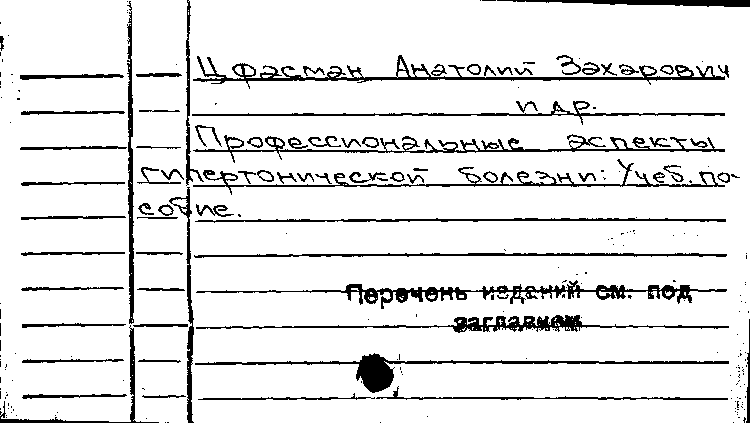 Цфасман Анатолий Захарович
и др.
Профессиональные аспекты
гипертонической болезни: Учеб. по-
собие.
Перечень изданий см. под
заглавием